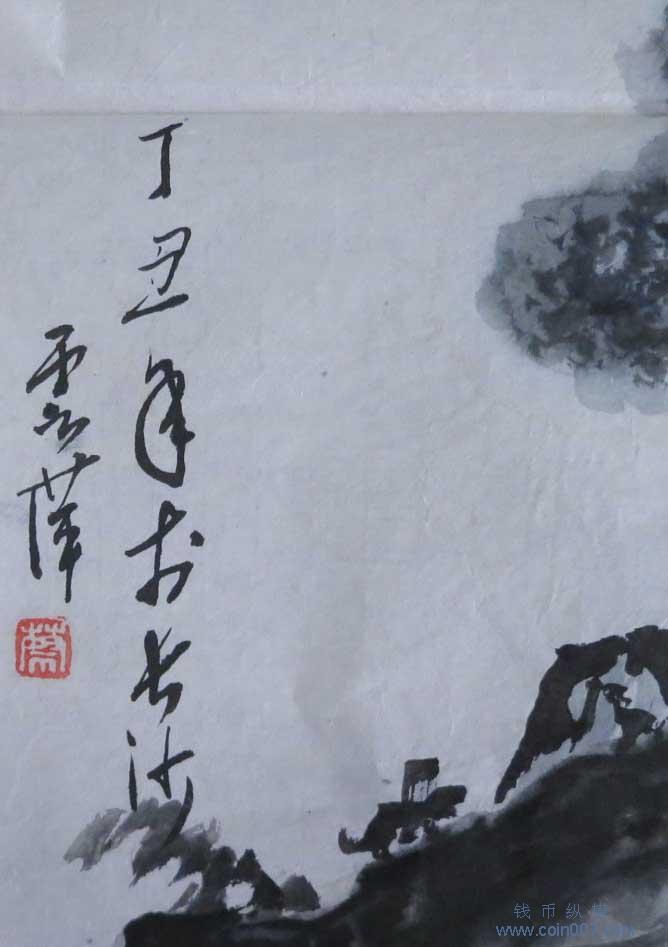 丁丑年於長沙
雲
钱币纵横
www.coin001.com